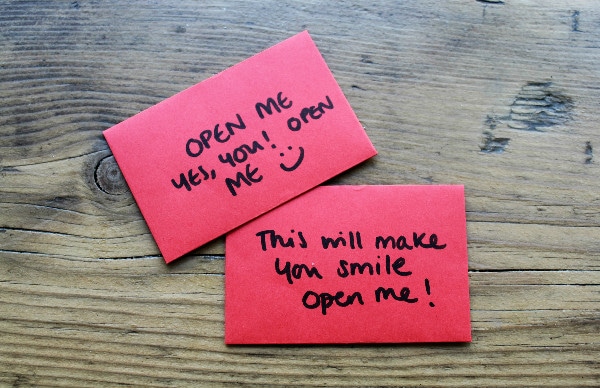 OPEN ME
YES, YOU! OPEN
ME
This will make
you smile
open me!